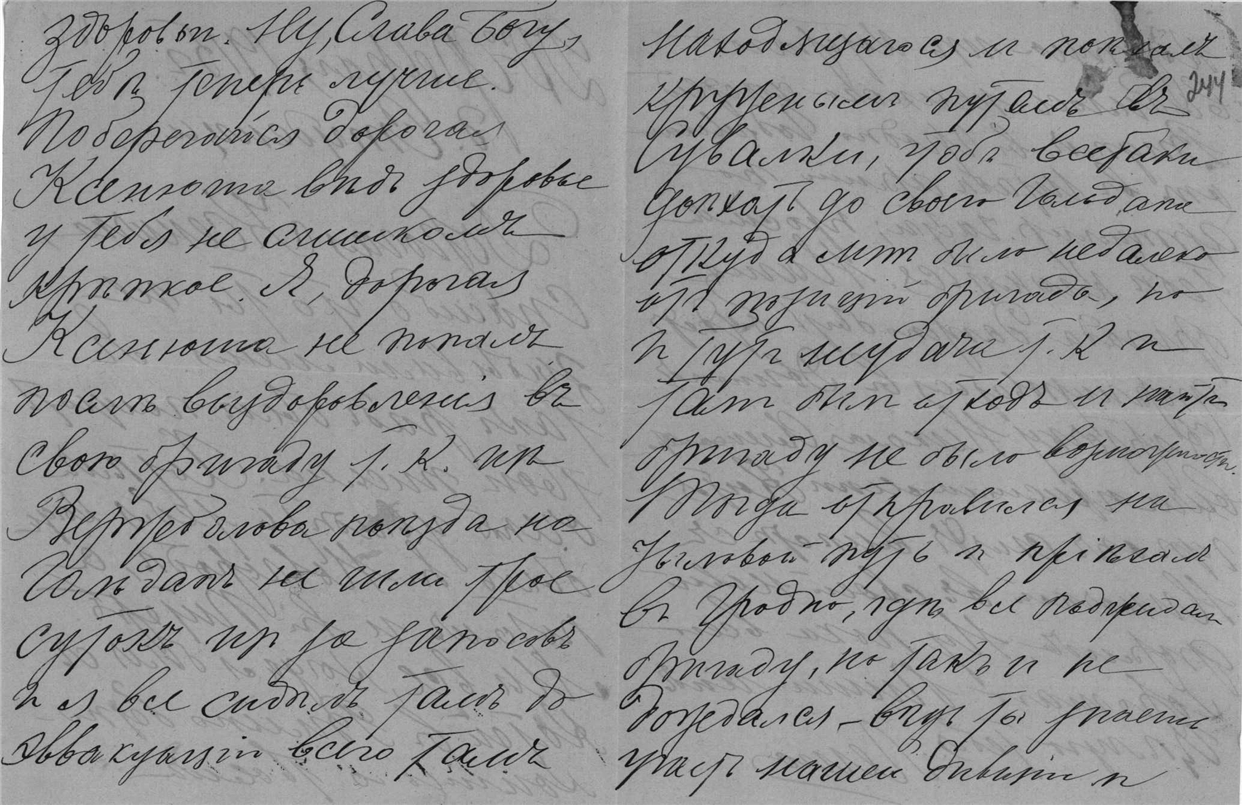 здоровьи. Ну, Слава Богу,
тебѣ теперь лучше.
Поберегайся дорогая
Ксенюша вѣдь здоровье
у тебя не слишкомъ
крѣпкое. Я, дорогая
Ксенюша не попалъ
послѣ выздоровленія въ
свою бригаду т. К. изъ
Вержболова поѣзда на
Гольдапъ не шли трое
сутокъ изъ за заносовъ
и я все сидѣлъ тамъ до
эввакуаціи всего тамъ
244
находящагося и поѣхалъ
круженымъ путемъ въ
Сувалки, чтобъ всетаки
доѣхать до своего Гольдапа
откуда мнѣ было недалеко
отъ позицій бригады, но
и тутъ неудача т. К и
тамъ былъ отходъ и найти
бригаду не было возможности.
Тогда отправился на
тыловой путь и пріѣхалъ
въ Гродно, гдѣ все поджидалъ
бригаду, но такъ и не
дождался – вѣдь ты знаешь
участь нашей дивизіи и